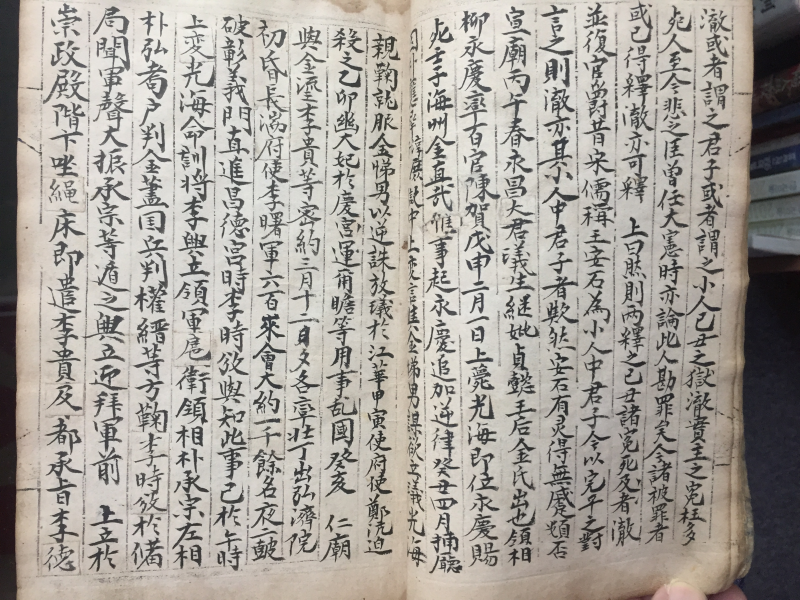 澈或者謂之君子或者謂之小人己丑之獄澈實主之寃枉多
死人至今悲之臣曾任大憲時亦論此人勘罪矣今諸被罪者
或已得釋澈亦可釋 上曰然則兩釋之己丑諸寃死及者澈
並復官爵昔宋儒稱王安石為小人中君子今以完平之對
言之則澈亦其小人中君子者歟狄安石有灵得無蹙頞否
宣廟丙午春永昌大君㼁生継妣貞懿王后金氏出也領相
柳永慶率百官陳賀戊申二月一日上薨光海即位永慶賜
死壬子海州金直哉惟事起永慶追加逆律癸丑四月捕廳
獄中上変言悌男謀欲立㼁光海
親鞠就服金悌男以逆誅放㼁於江華甲寅使府使鄭沆迫
殺之乙卯幽大妃於慶宮運爾瞻等用事乱國癸亥 仁廟
與金瑬李貴等密約三月十二日夕各率壯丁出弘濟院
初昏長湍府使李曙軍六百來會大約一千餘名夜二皷
破彰義門直進昌德宮時李時發與知此事已於午時
上変光海命訓將李興立領軍扈衛領相朴承宗左相
朴弘耈戶判金藎国兵判權縉等方鞠李時發於備
局聞軍聲大振承宗等遁之興立迎拜軍前 上立於
崇政殿階下坐繩床即遣李貴反都承旨李德